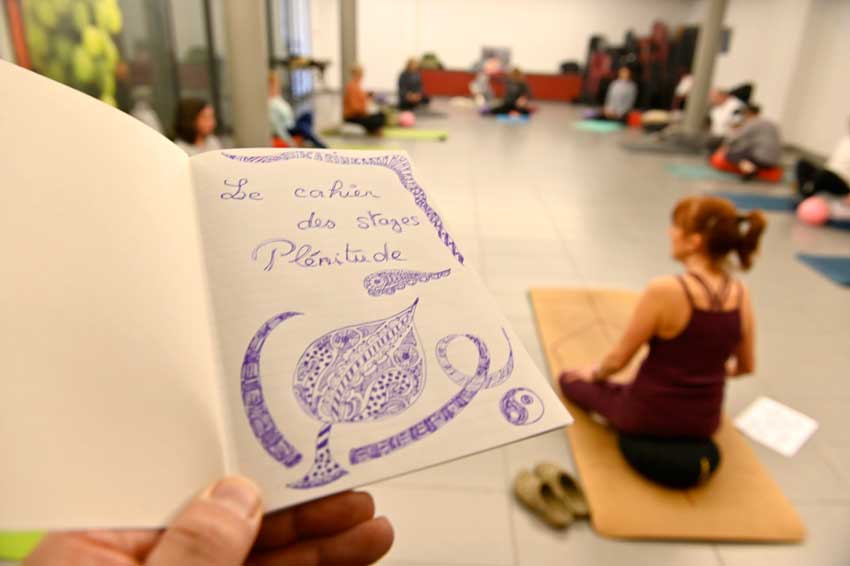 Le cahier
des stages
Plénitude